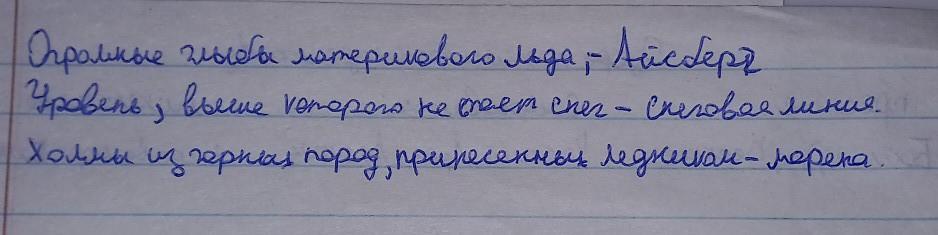 Огромные глыбы материкового льда, - Айсберг
Уровень, выше которого не тает снег - снеговая линия.
Холмы из горных пород, принесенных ледником - морена.